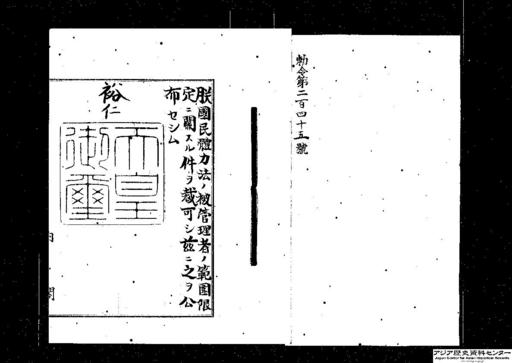 勅令第二百四十五號
朕國民體力法ノ被管理者ノ範圍限
定ニ關スル件ヲ裁可シ茲ニ之ヲ公
布セシム
裕仁
天皇
御璽
内閣
アジア歴史資料センター
Japan Center for Asian Historical Records